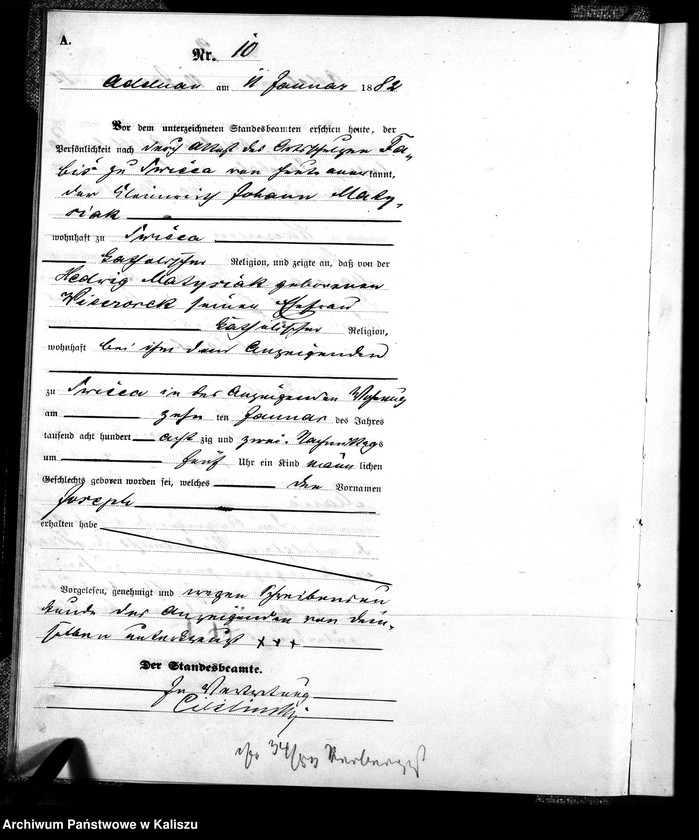 A.
Nr. 10
Adelnau am 11 Januar 1882
Vor dem unterzeichneten Standesbeamten erschien heute, der
Persönlichkeit nach durch Attest des Ortsschulzen Fa-
bis zu von heute anerkannt,
der Johann Maty-
siak
wohnhaft zu
katholischer Religion, und zeigte an, daß von der
Hedwig Matysiak geborenen
Wieczorek seinen Ehefrau
katholischer Religion,
wohnhaft bei ihm dem Anzeigenden
zu in des Anzeigenden Wohnung
am zehn ten Januar des Jahres
tausend acht hundert acht zig und zwei Nachmittags
um fünf Uhr ein Kind männlichen
Geschlechts geboren worden sei, welches den Vornamen
Joseph
erhalten habe
Vorgelesen, genehmigt und wegen Schreibensun-
kunde des Anzeigenden von dem-
selben unterkreuzt +++
Der Standesbeamte.
In Vertretung
Archiwum Państwowe w Kaliszu